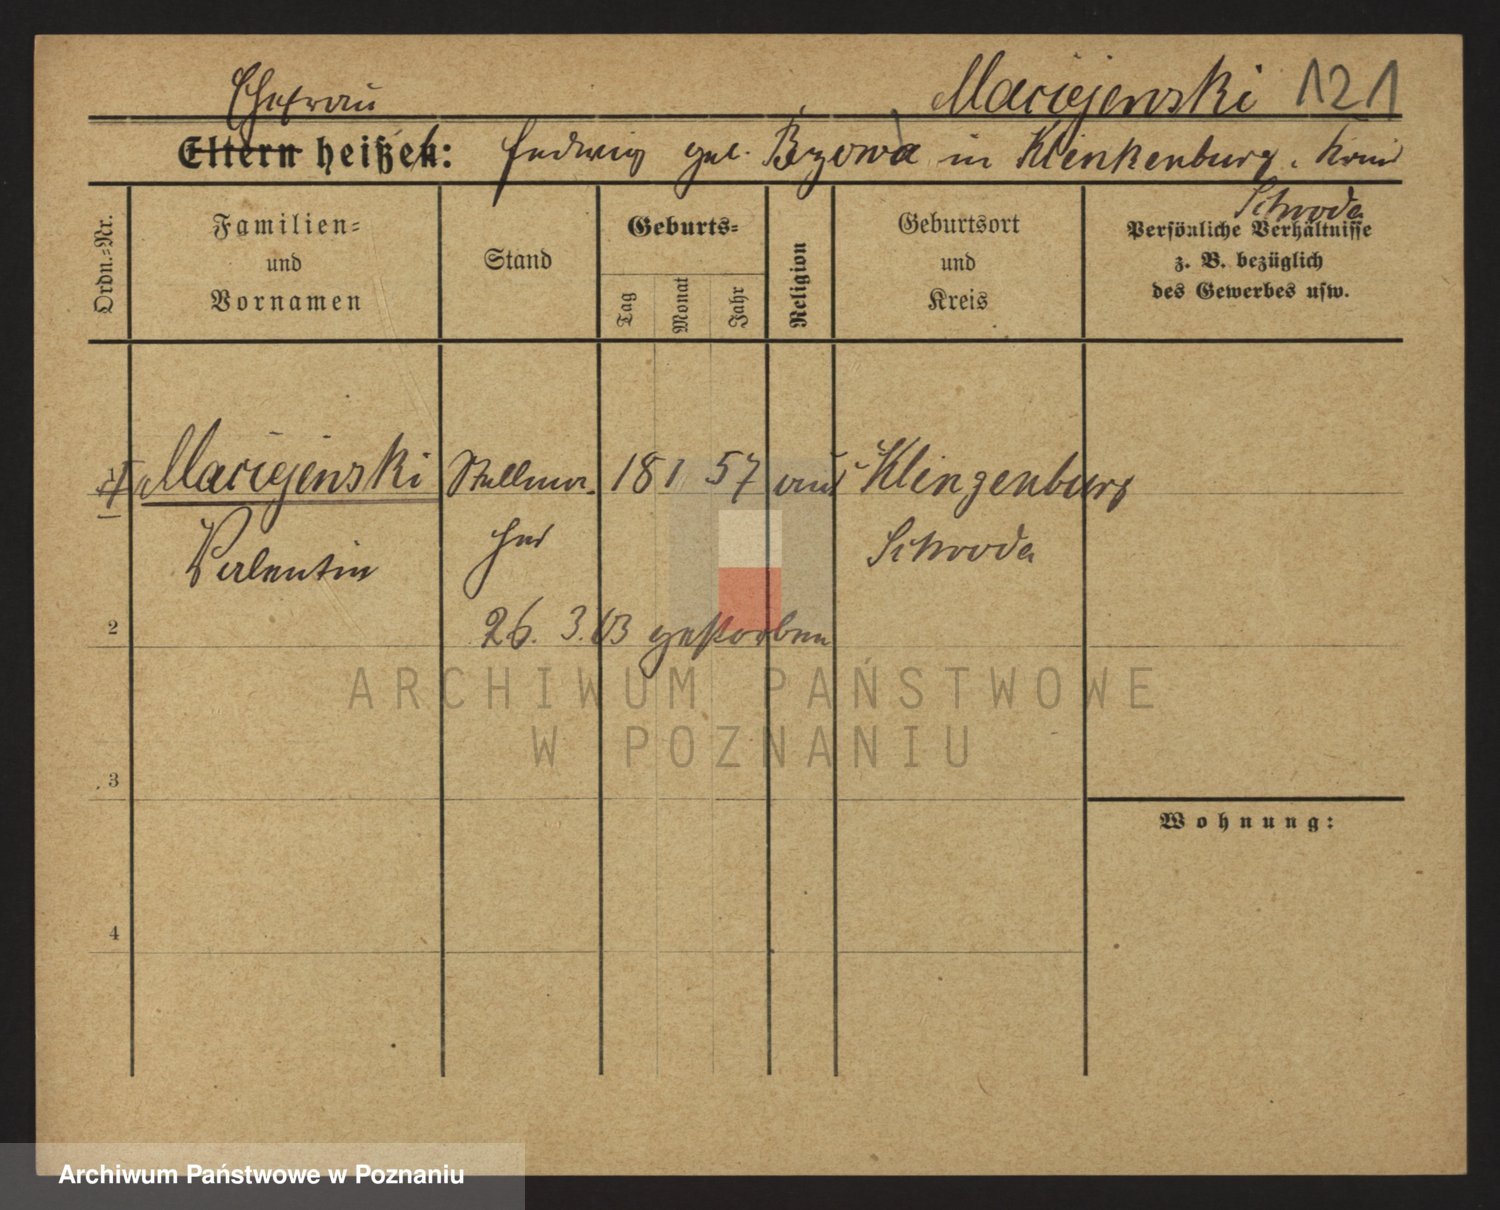 Ehefrau Maciejewski 121
Eltern heißen: Hedwig geb. Bzowa in Klenkenburg, Kreis
Schroda
Ordn.-Nr.
Familien-
und
Vornamen
Stand
Geburts-
Tag
Monat
Jahr
Religion
Geburtsort
und
Kreis
Persönliche Verhältnisse
z. B. bezüglich
des Gewerbes usw.
1 Maciejewski Stellma- 18 1 57 Klingenburg
Valentin cher Schroda
2 26. 3. 03 gestorben
ARCHIWUM PAŃSTWOWE
W POZNANIU
3
Wohnung:
4
Archiwum Państwowe w Poznaniu